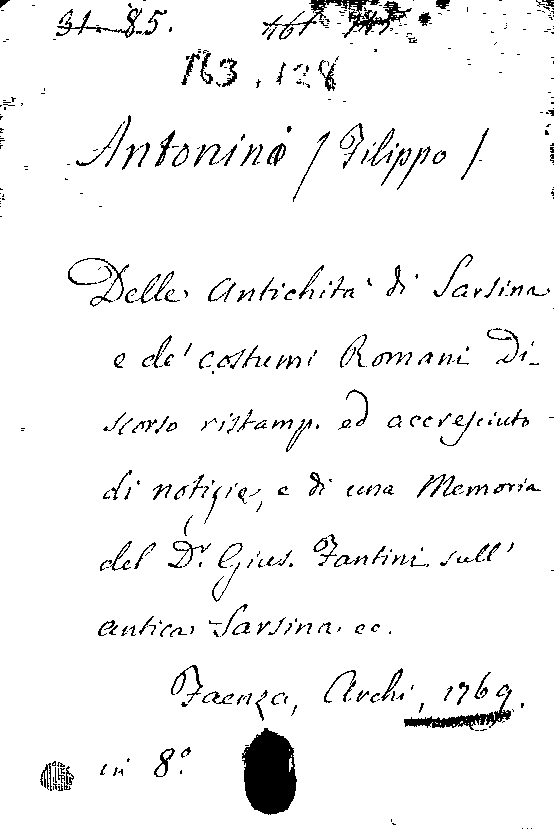 31-85.
163.128
Antonini / Filippo /
Delle Antichità di Sarsina
e de' costumi Romani Di-
scorso ristamp. ed accresciuto
di notizie, e di una Memoria
del Dr. Gius. Fantini sull'
antica Sarsina ec.
Faenza, Archi, 1769.
in 8º